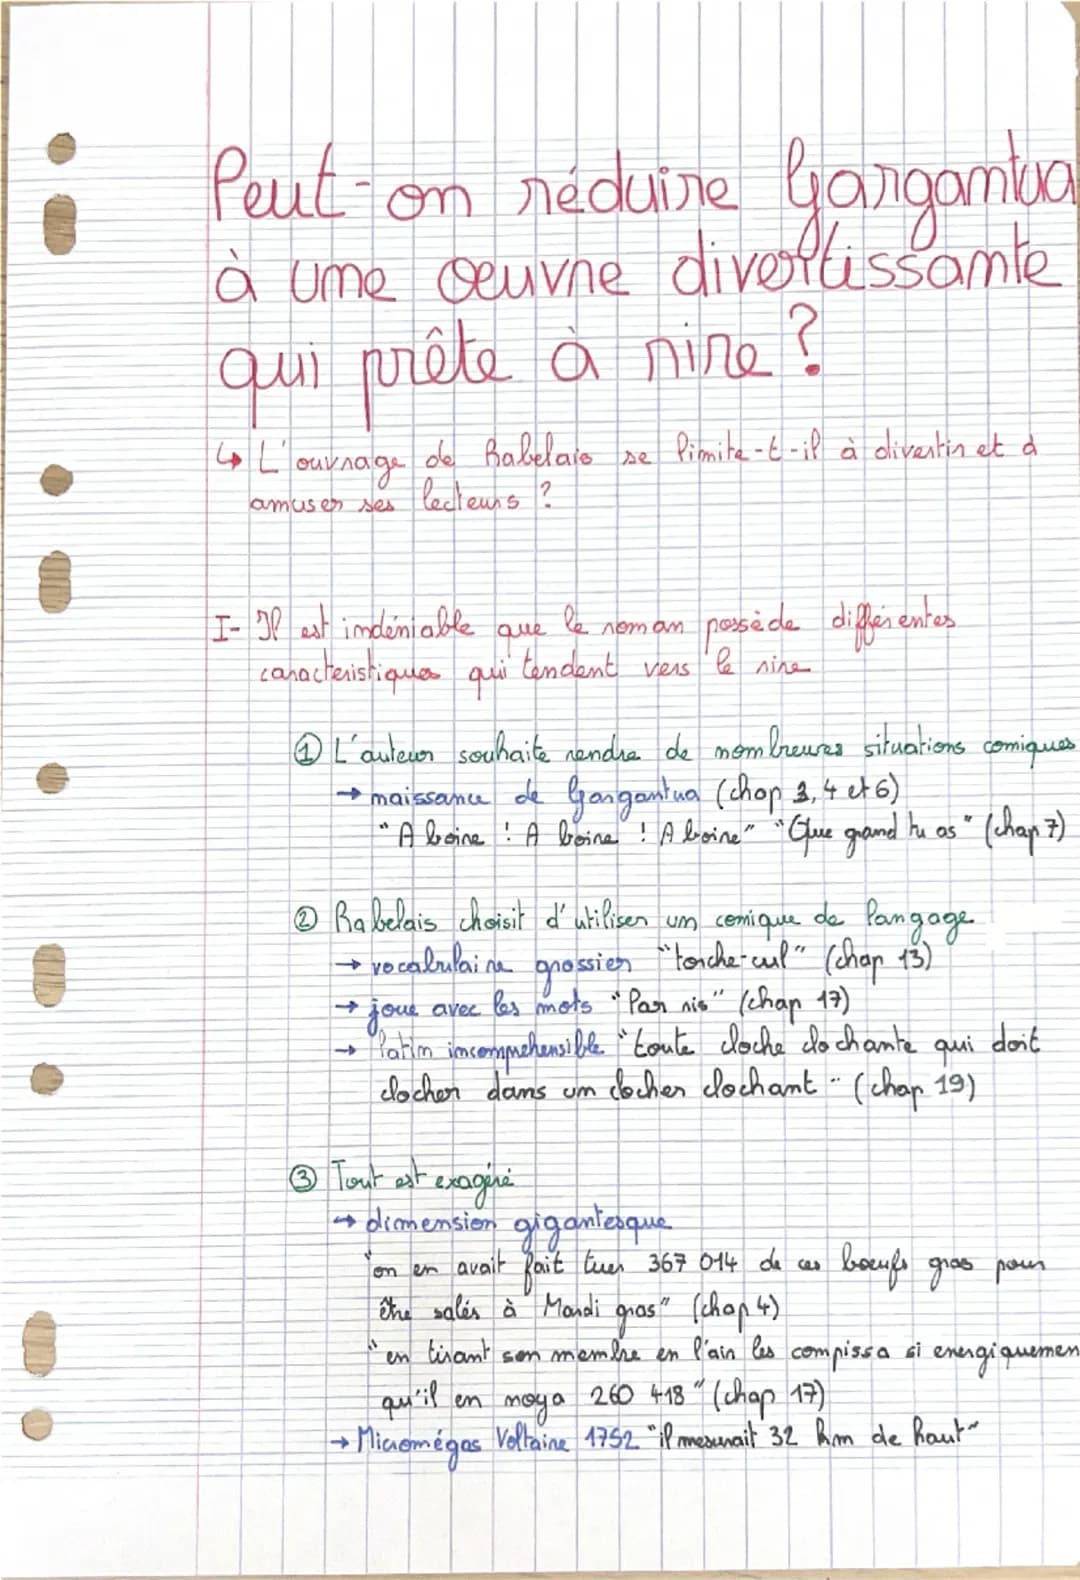 Peut-on réduire Gargantua
à une oeuvre divertissante
qui prête à rire ?
↳ L'ouvrage de Rabelais se limite-t-il à divertir et à
amuser ses lecteurs ?
I- Il est indéniable que le roman possède différentes
caracteristiques qui tendent vers le rire
① L'auteur souhaite rendre de nombreuses situations comiques
→ naissance de Gargantua (chap 3, 4 et 6)
"A boire ! A boire ! A boire" "Que grand tu as" (chap 7)
② Rabelais choisit d'utiliser un comique de langage
→ vocabulaire grossier "torche-cul" (chap 13)
→ joue avec les mots "Par ris" (chap 17)
→ latin incomprehensible "toute cloche clochante qui doit
clocher dans un clocher clochant" (chap 19)
③ Tout est exagéré
→ dimension gigantesque
"on en avait fait tuer 367 014 de ces boeufs gras pour
être salés à Mardi gras" (chap 4)
"en tirant son membre en l'air les compissa si energiquemen
qu'il en noya 260 418" (chap 17)
→ Micromégas Voltaire 1752 "il mesurait 32 km de haut"